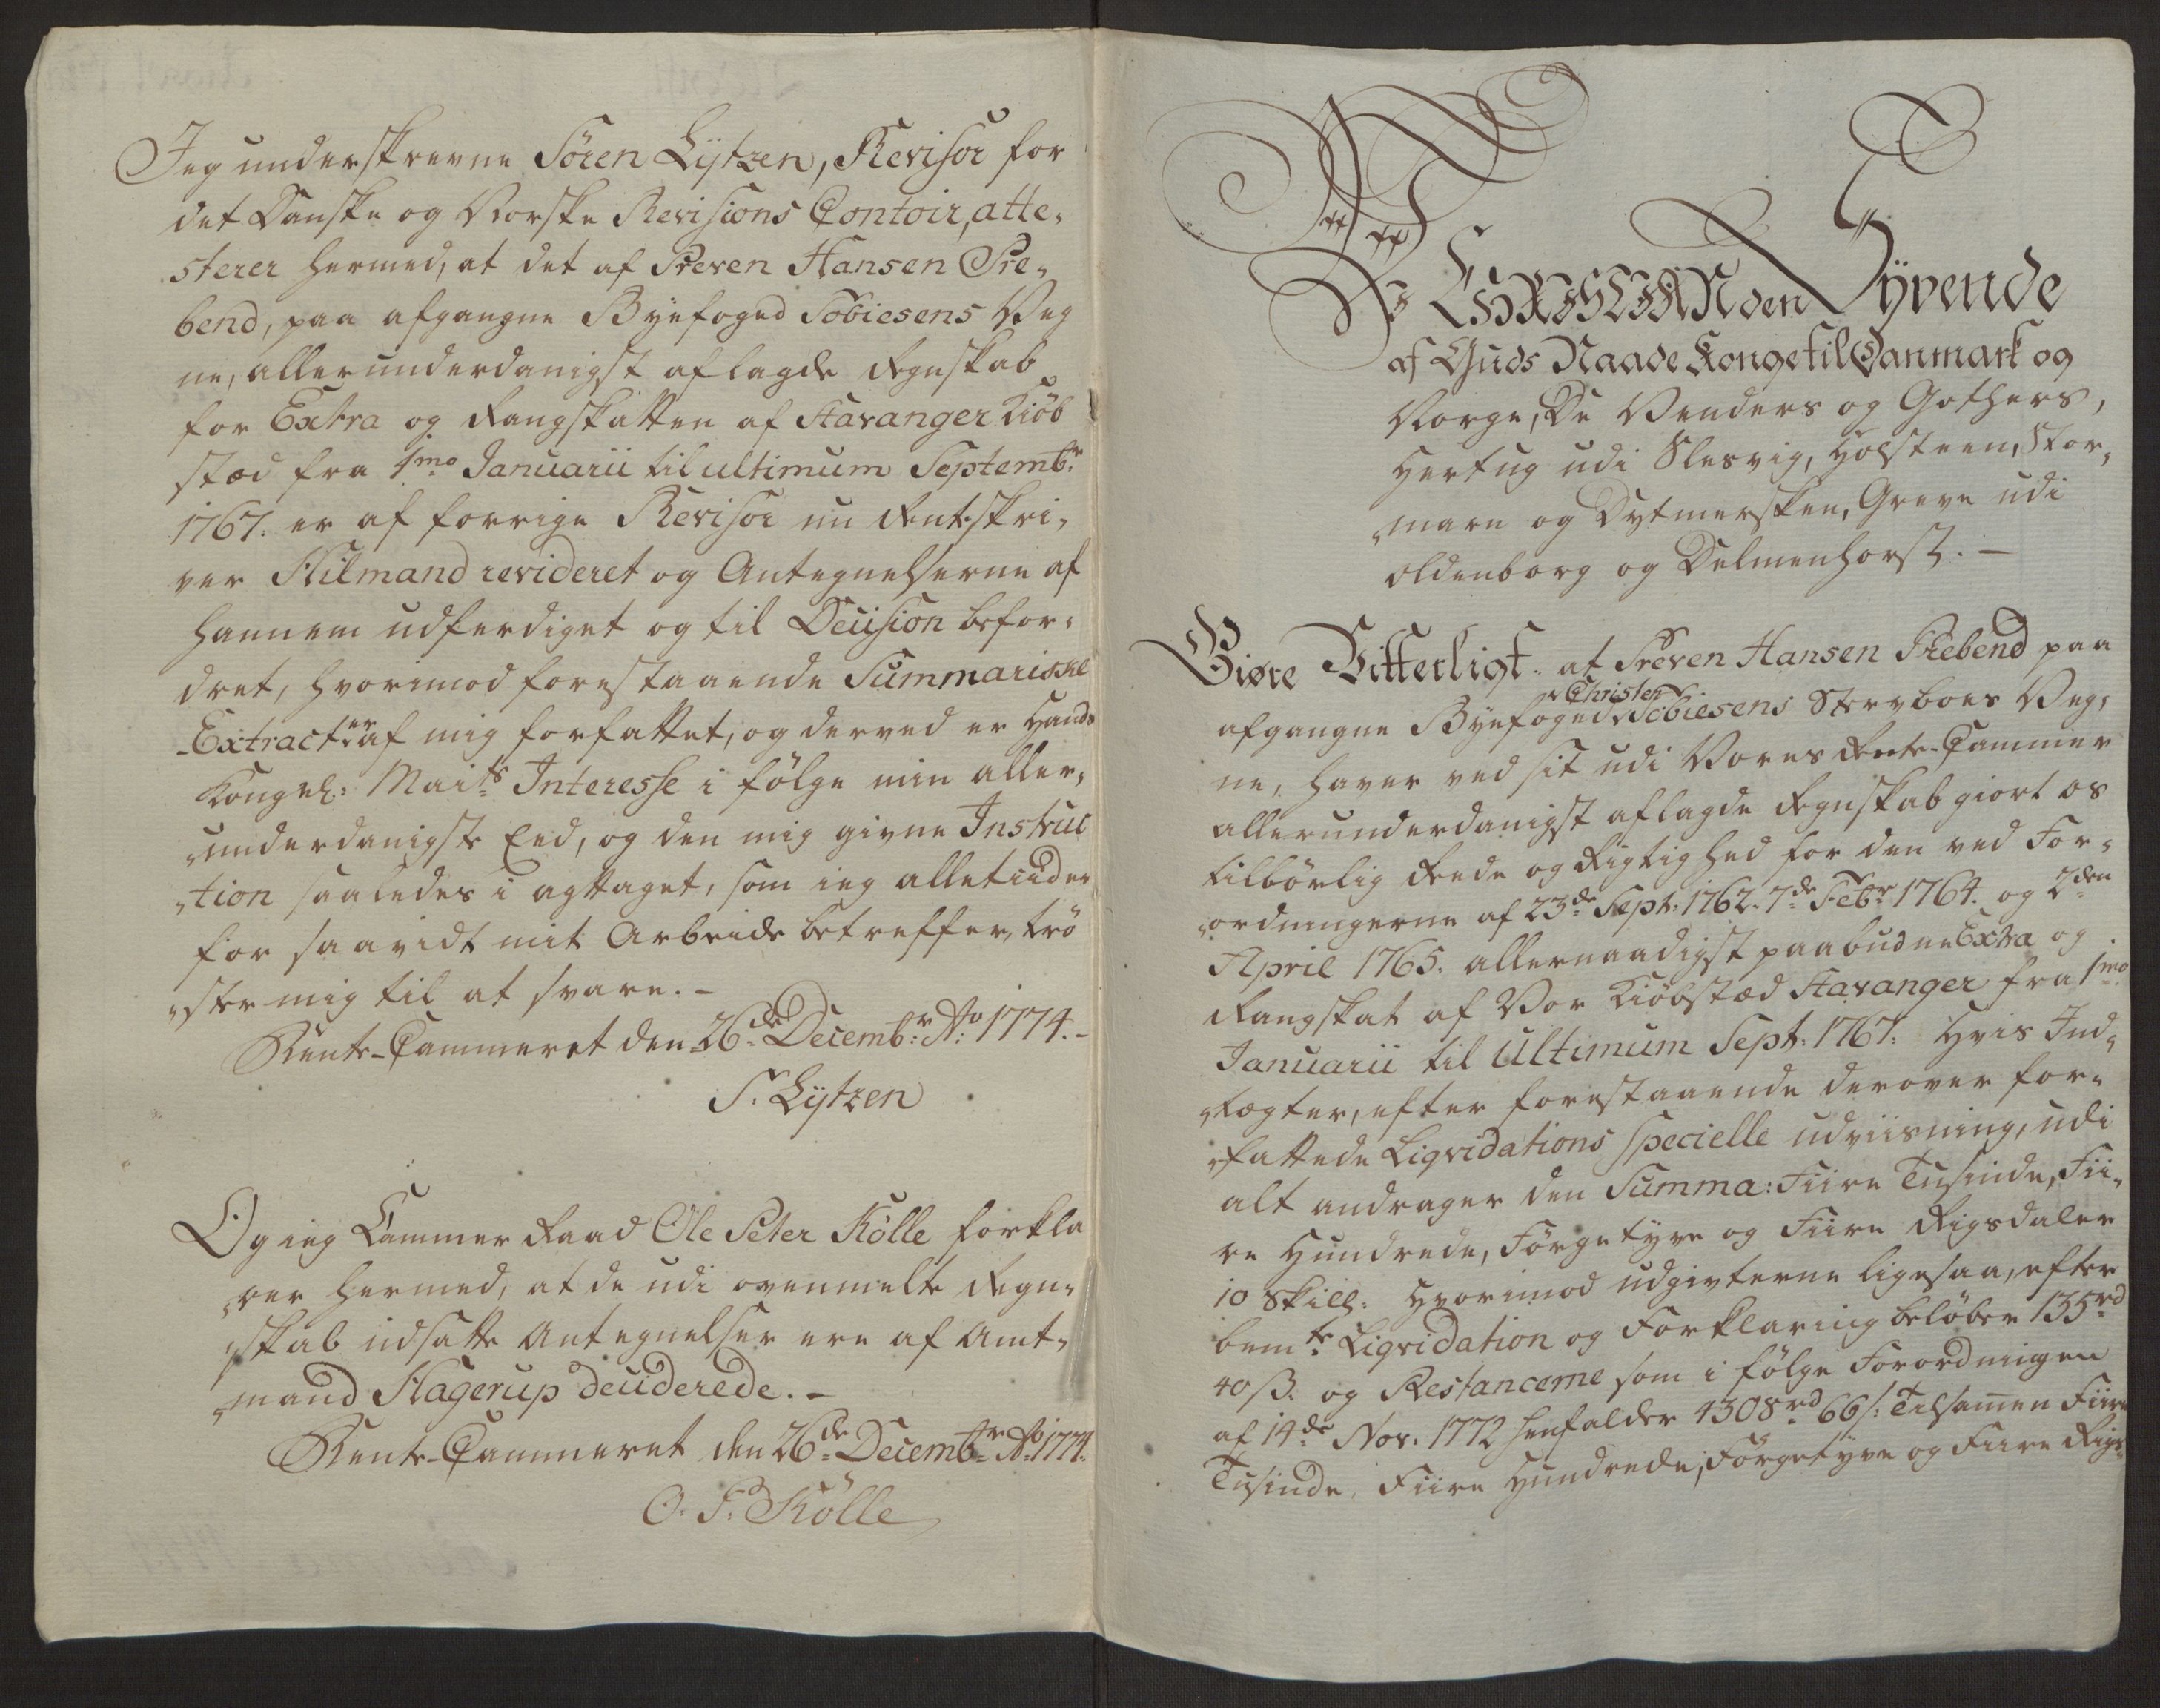 Jeg underskrevne Sören Lÿtzen, Revisor for
det Danske og Norske Revisions Contoir, atte¬
sterer hermed, at det af Preven Hansen Pre¬
bend, paa afgangne Byefoged Tobiesens Veg
ne, allerunderdanigst aflagde Regnskab
for Extra og Rangskatten af Stavanger Kiöb
stæd fra 1mo Januarii til ultimum Septembr
1767. er af forrige Revisor nu Rentskri¬
ver Hilmand revideret og Antegnelserne af
hannem udferdiget og til Decision befor¬
dret, hvorimod forestaaende Summariske
Extracter er af mig forfattet, og derved er Hands
Kongel: Maits Interesse i følge min aller¬
underdanigste Eed, og den mig givne Instruc
tion saaledes i agttaget, som ieg alletiider
for saavidt mit Arbeide betreffer, trö
ster mig til at svare. -
Rente-Cammeret den 26de Decembr: Ao: 1774. -
S. Lÿtzen
Og ieg Cammer Raad Ole Peter Kölle forkla
rer hermed, at de udi ovenmelte Regn¬
skab udsatte Antegnelser ere af Amt¬
mand Hagerup deciderede. -
Rente-Cammeret den 26de Decembr Ao: 1774.
O. P. Kölle
Wii
Vs CHRISTIAN den Syvende
af Guds Naade Konge til Danmark og
Norge, De Venders og Gothers,
Hertug udi Slesvig, Holsteen, Stor¬
marn og Dytmersken, Greve udi
Oldenborg og Delmenhorst. -
Giøre Vitterligt: at Preven Hansen Prebend paa
Christen
afgangne Byefoged Tobiesens Sterboes Veg¬
ne, haver ved sit udi Vores Rente-Cammer
allerunderdanigst aflagde Regnskab giort os
tilbörlig Rede og Rigtighed for den ved For¬
ordningerne af 23de Sept: 1762. 7de Febr 1764. og 2den
April 1765. allernaadigst paabudne Extra og
Rangskat af Vor Kiöbstæd Stavanger fra 1mo
Januarii til Ultimum Sept: 1767: Hvis Ind¬
tægter, efter forestaaende derover for¬
fattede Liqvidations specielle udviisning, udi
alt andrager den Summa: Fiire Tusinde, Fii¬
re Hundrede, Förgetyve og Fiire Rigsdaler
10 Skill: Hvorimod udgivterne ligesaa, efter
bemte Liqvidation og Forklaring belöber 135rd
40ß. og Restancerne som i fölge Forordningen
af 14de Nov. 1772 henfalder 4308rd 66ß: Tilsamen Fiire
Tusinde, Fiire Hundrede, Förgetyve og Fiire Rigs¬